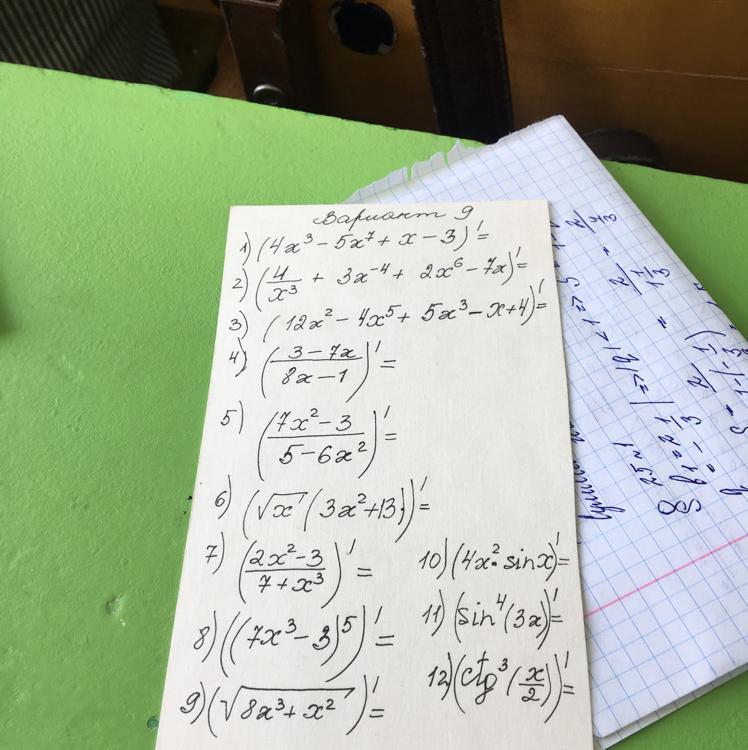 Вариант 9
1) (4x³ − 5x⁷ + x − 3)' =
2) (4/x³ + 3x⁻⁴ + 2x⁶ − 7x)' =
3) (12x² − 4x⁵ + 5x³ − x + 4)' =
4) ((3 − 7x)/(8x − 1))' =
5) ((7x² − 3)/(5 − 6x²))' =
6) (√x (3x² + 13))' =
7) ((2x² − 3)/(7 + x³))' =
8) ((7x³ − 3)⁵)' =
9) (√(8x³ + x²))' =
10) (4x² · sin x)' =
11) (sin⁴(3x))' =
12) (ctg³(x/2))' =